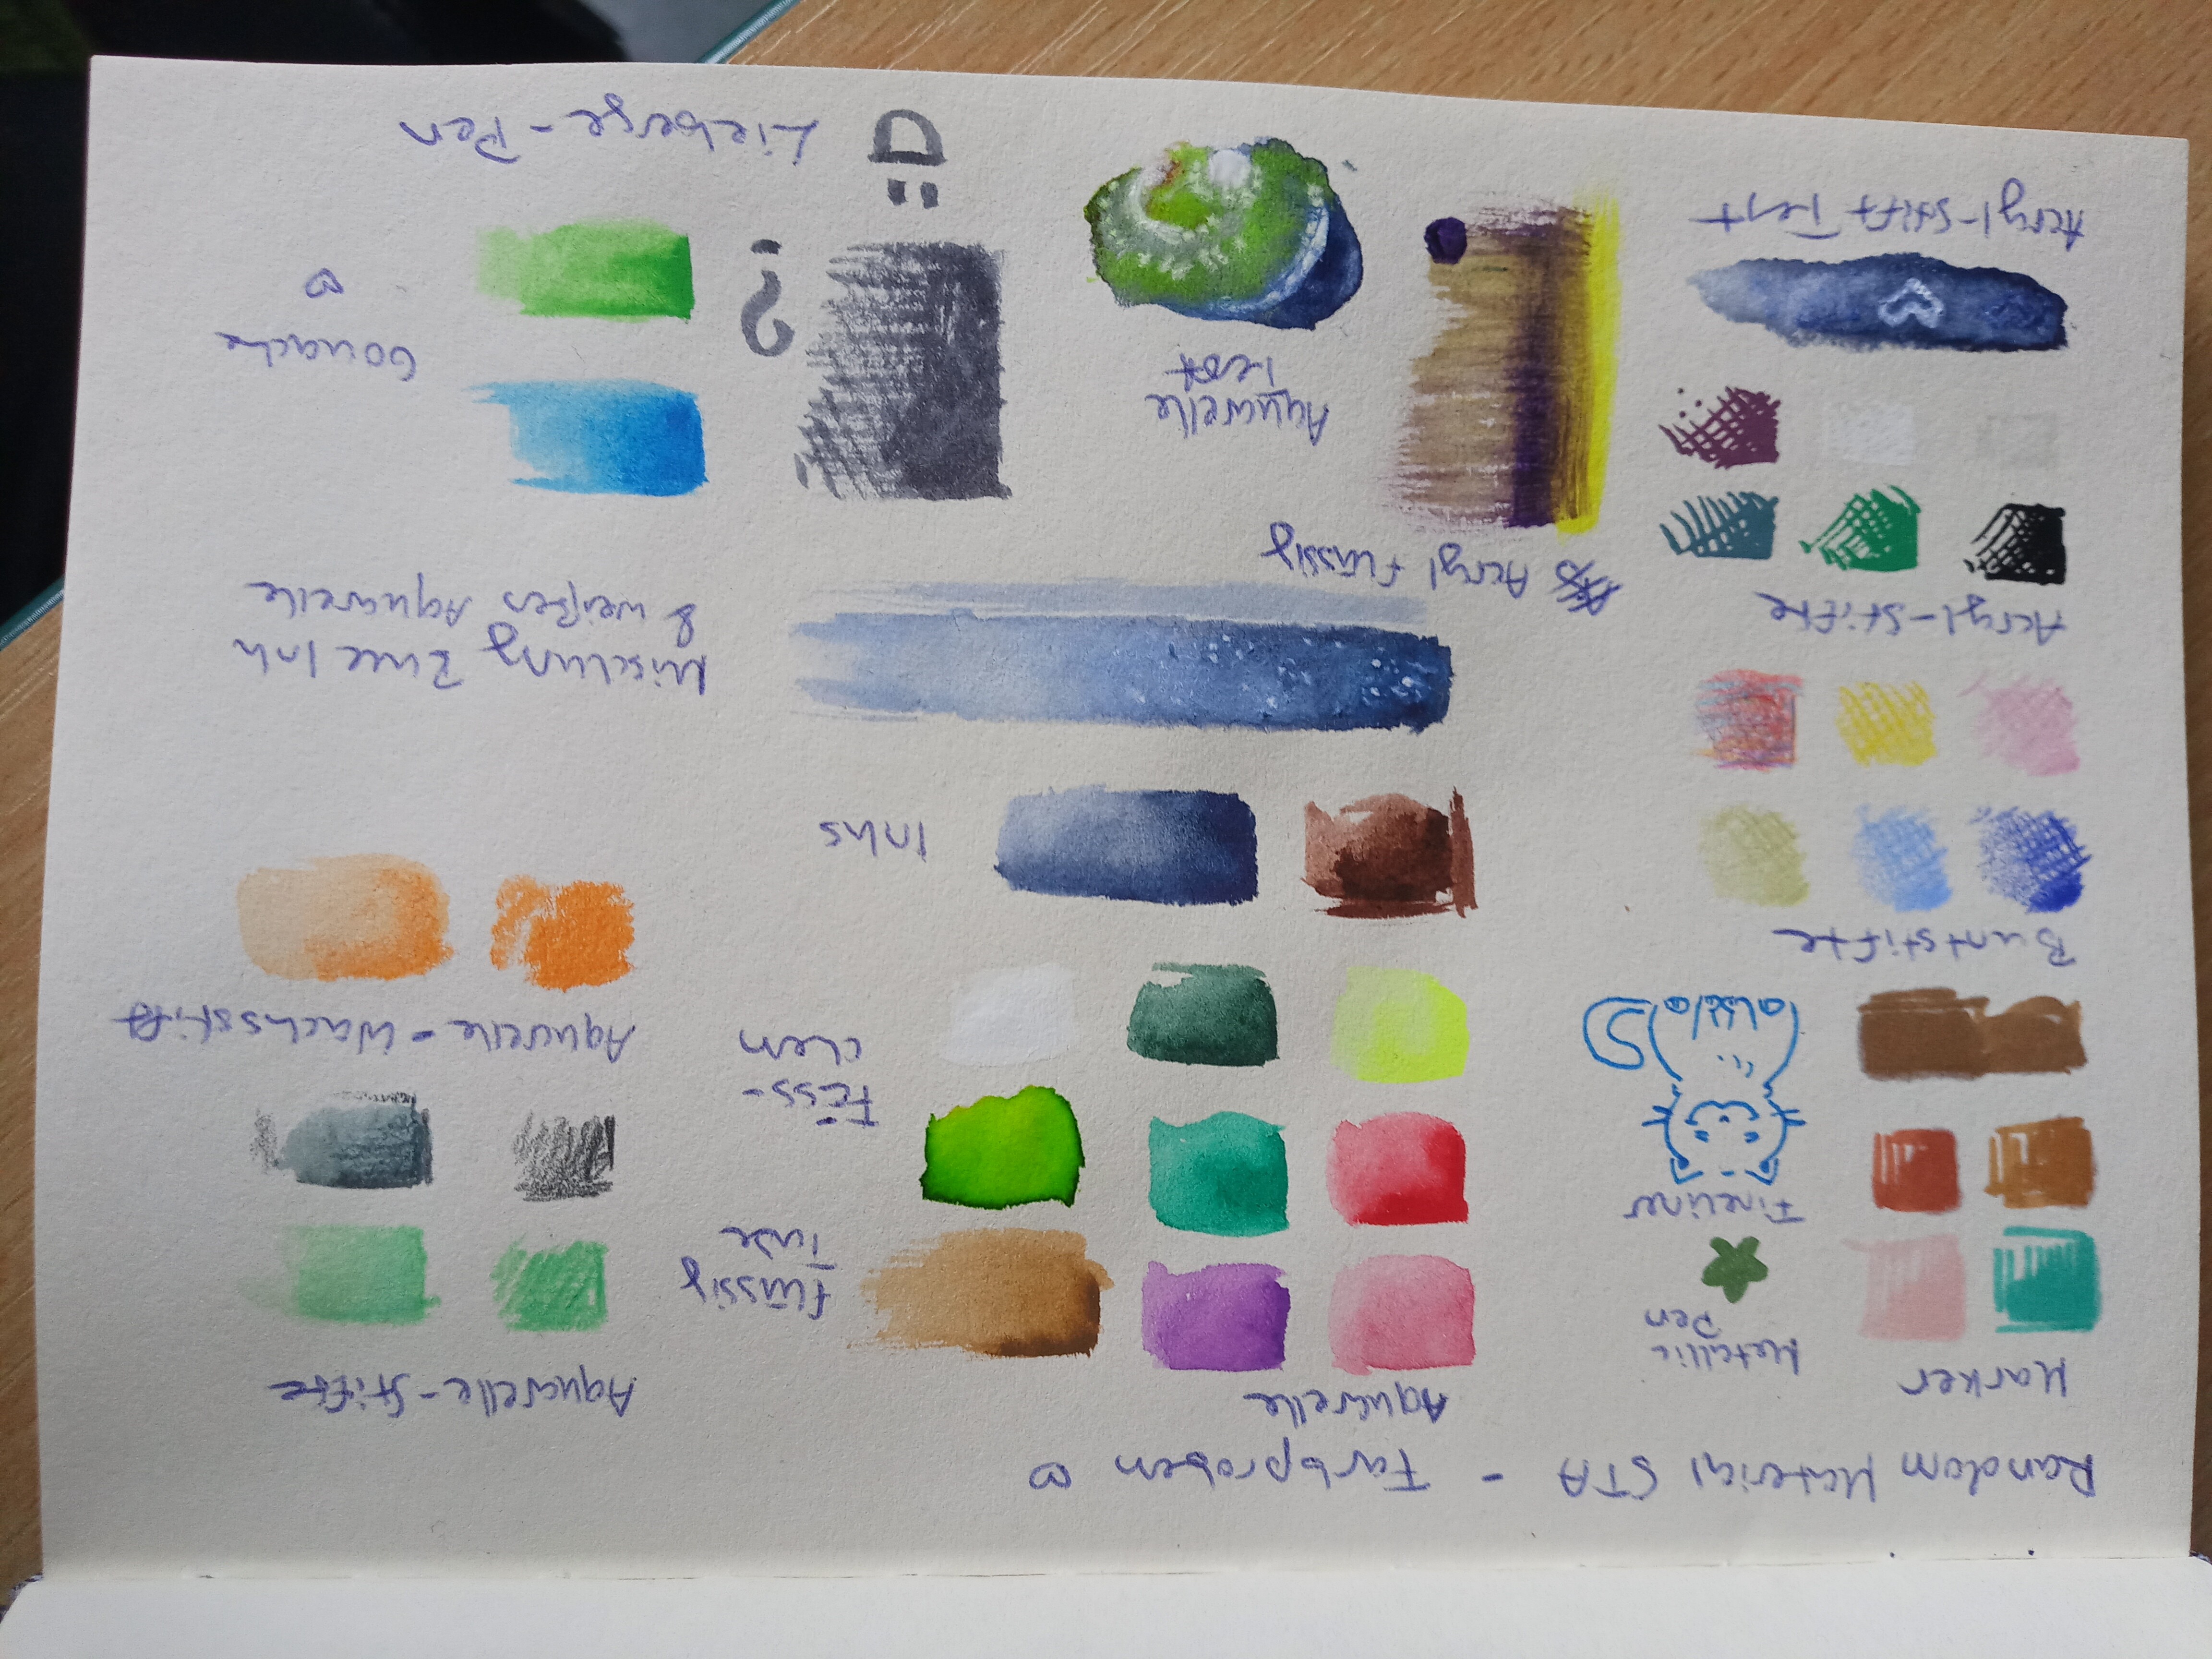 Random Material STA - Farbproben
Marker
Metallic
Pen
Fineliner
Buntstifte
Acryl-Stifte
Acryl-Stift Test
Aquarelle
Flüssig
Tube
Näss-
chen
Inks
Mischung Blue Ink
& weißes Aquarelle
Acryl Flüssig
Aquarelle
Test
Aquarelle-Stifte
Aquarelle-Wachsstift
Gouache
Liebengs-Pen
:D
?